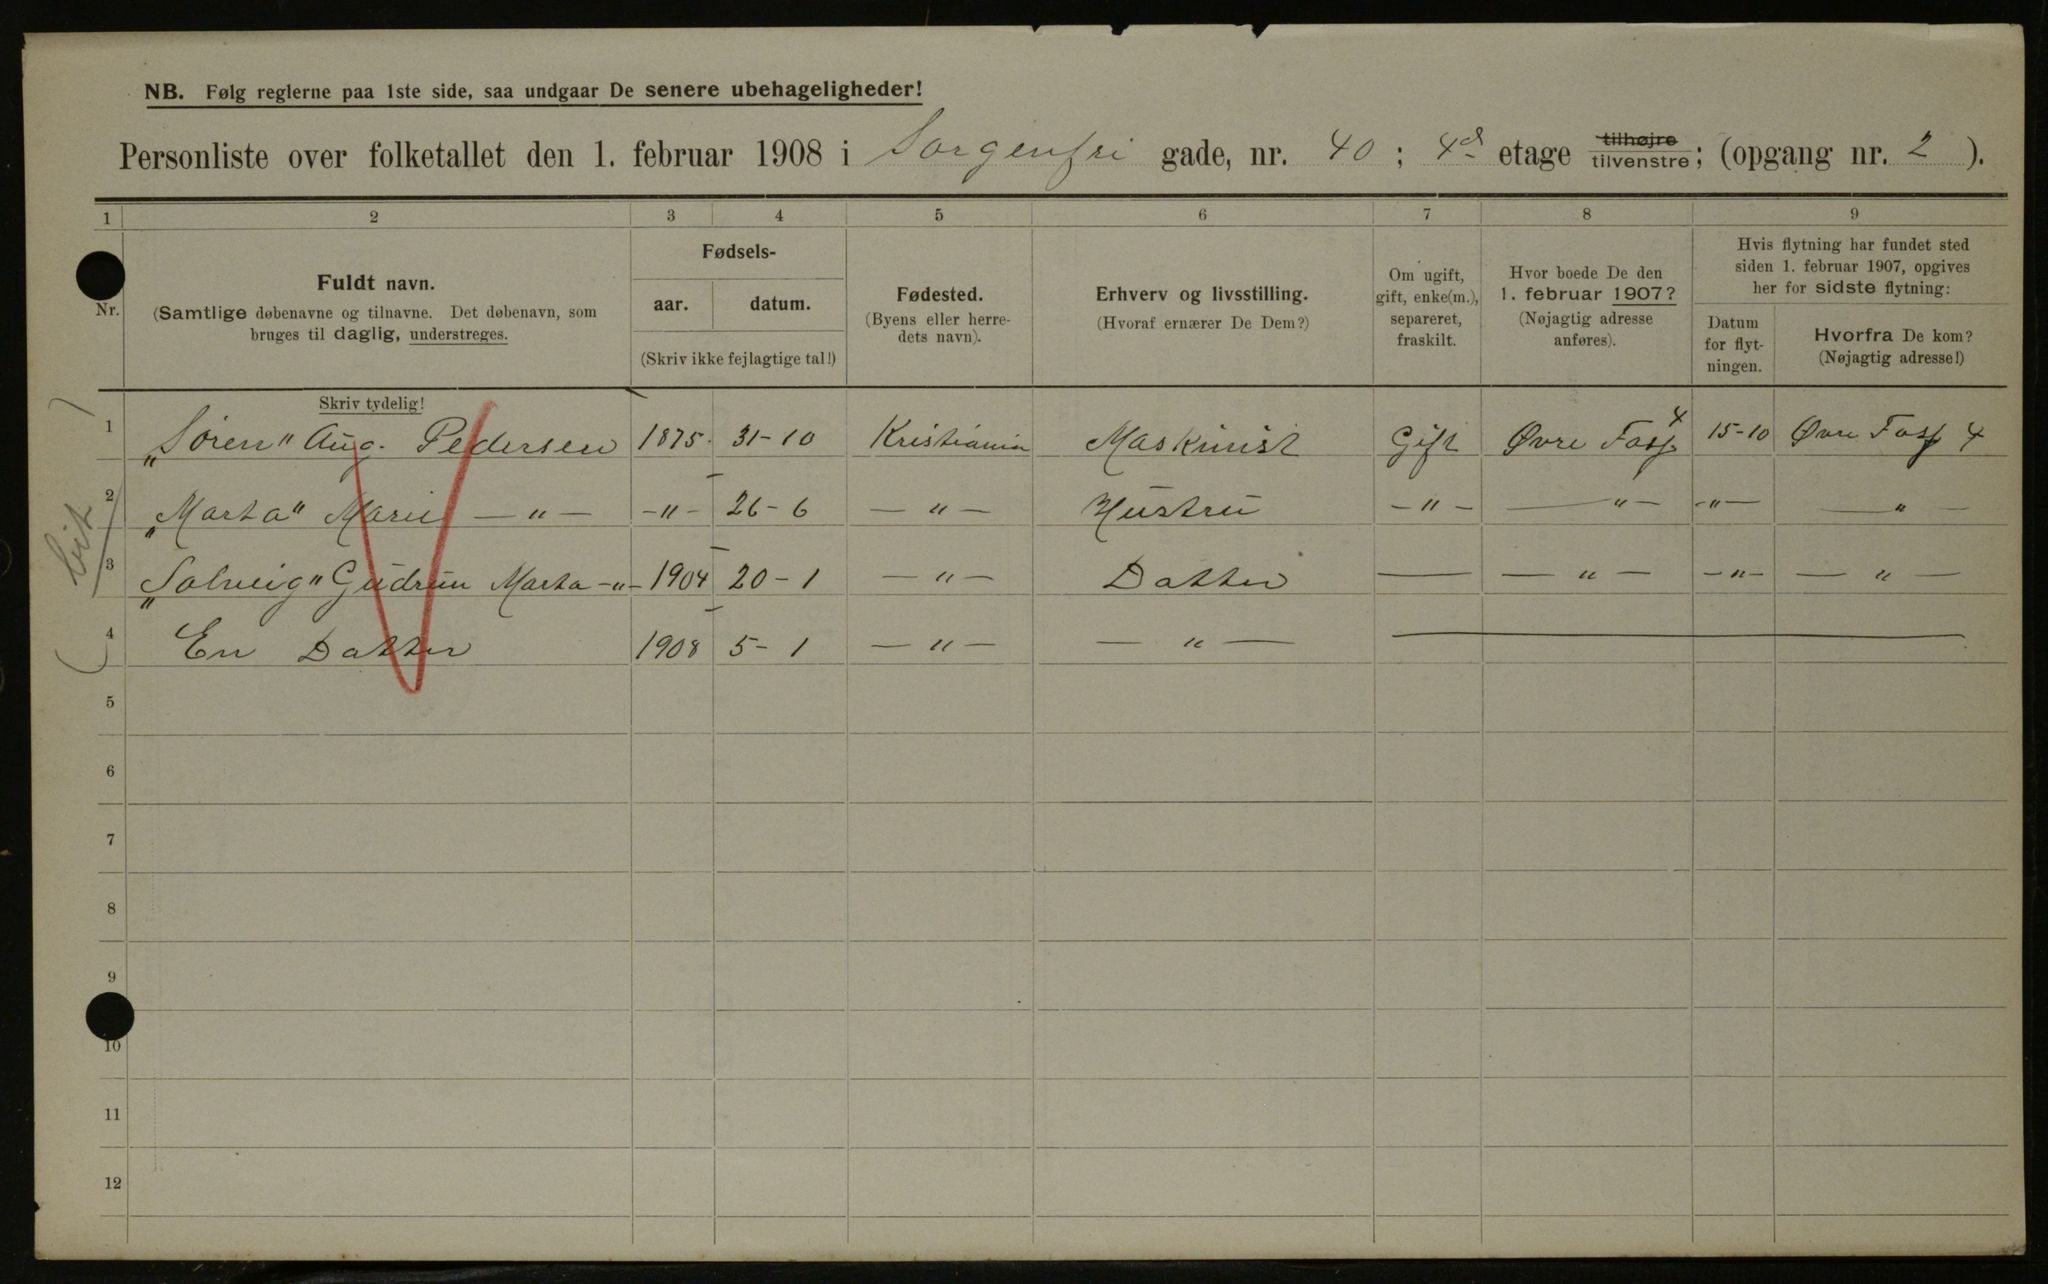 NB. Følg reglerne paa 1ste side, saa undgaar De senere ubehageligheder!
Personliste over folketallet den 1. februar 1908 i Sorgenfri gade, nr. 40; 4d etage tilhøjre tilvenstre; (opgang nr. 2).
1 2 3 4 5 6 7 8 9
Nr.
Fuldt navn.
(Samtlige døbenavne og tilnavne. Det døbenavn, som
bruges til daglig, understreges.
Fødsels-
aar. datum.
(Skriv ikke fejlagtige tal!)
Fødested.
(Byens eller herre-
dets navn).
Erhverv og livsstilling.
(Hvoraf ernærer De Dem?)
Om ugift,
gift, enke(m.),
separeret,
fraskilt.
Hvor boede De den
1. februar 1907?
(Nøjagtig adresse
anføres).
Hvis flytning har fundet sted
siden 1. februar 1907, opgives
her for sidste flytning:
Datum
for flyt-
ningen.
Hvorfra De kom?
(Nøjagtig adresse!)
Skriv tydelig!
1 „Sören" Aug. Pedersen 1875 31-10 Kristiania Maskinist Gift Øvre Fossg 4 15-10 Øvre Fossg 4
2 „Marta" Marie —"— -"- 26-6 —"— Hustru -"- —"— -"- —"—
3 „Solveig" Gudrun Marta -"- 1904 20-1 —"— Datter — —"— -"- —"—
4 En Datter 1908 5-1 —"— —"— —
5
6
7
8
9
10
11
12